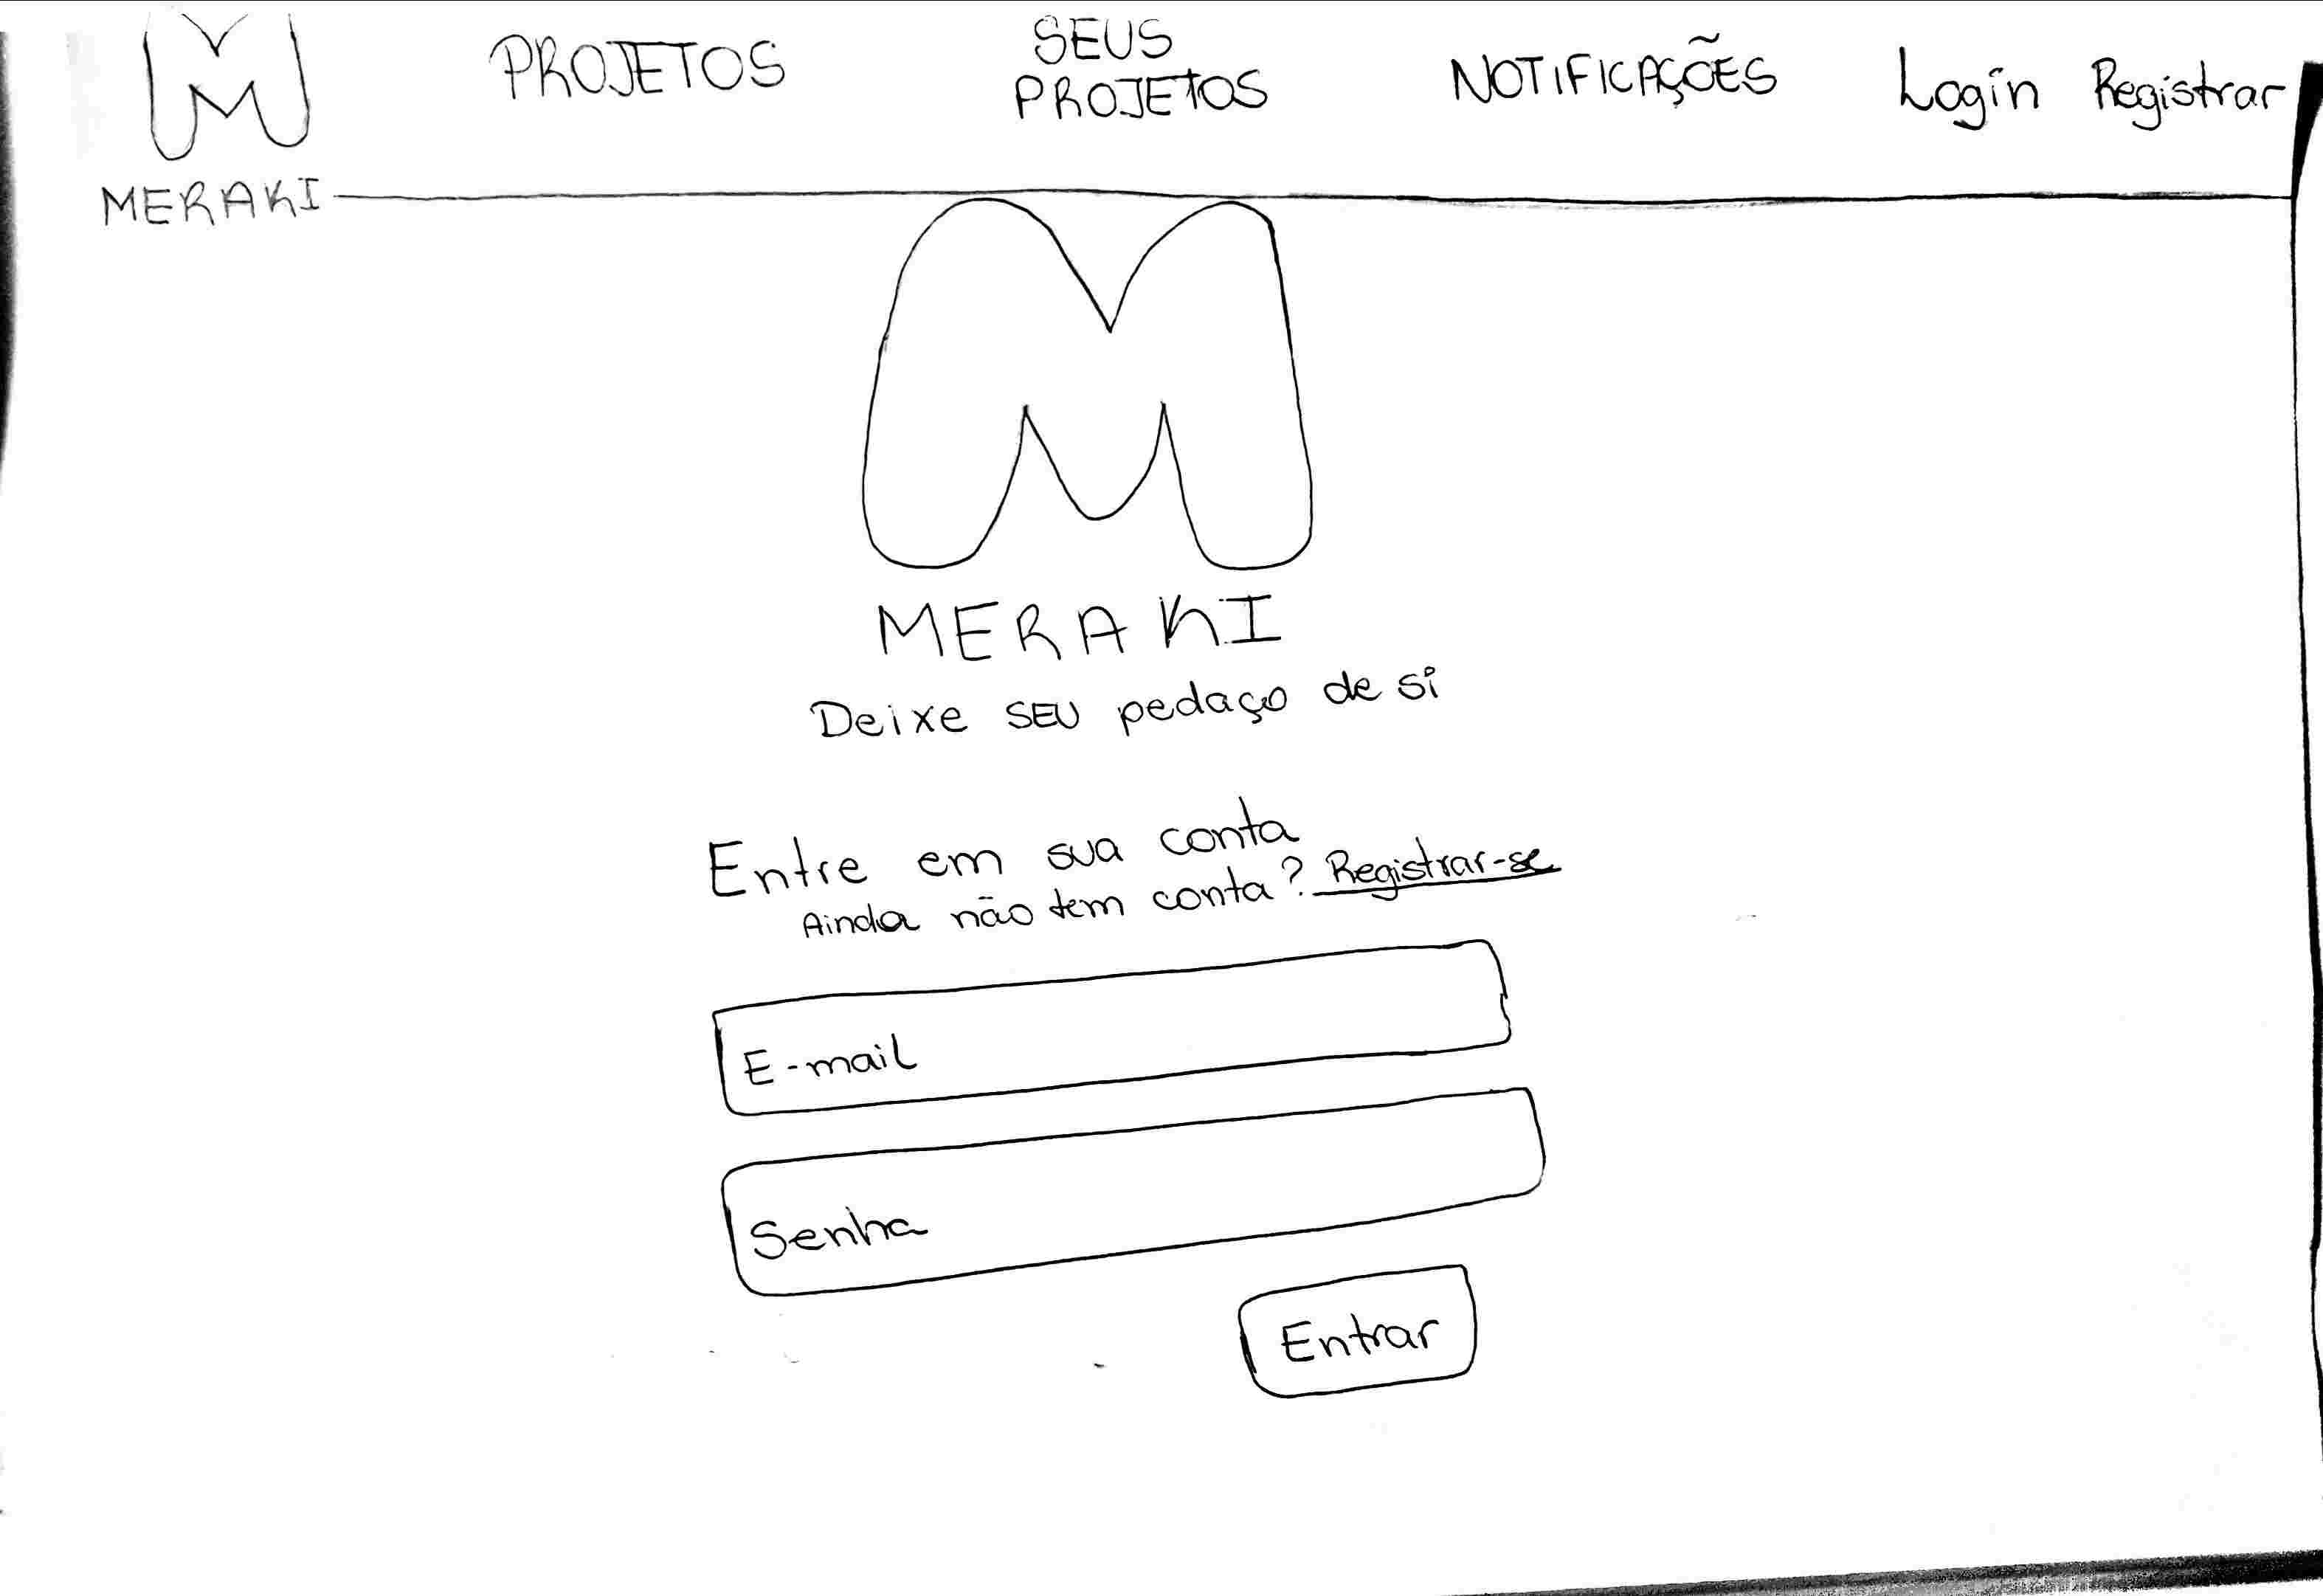 PROJETOS
SEUS
PROJETOS
NOTIFICAÇÕES
Login Registrar
MERAKI
MERAKI
Deixe SEU pedaço de si
Entre em sua conta
Ainda não tem conta? Registrar-se
E-mail
Senha
Entrar